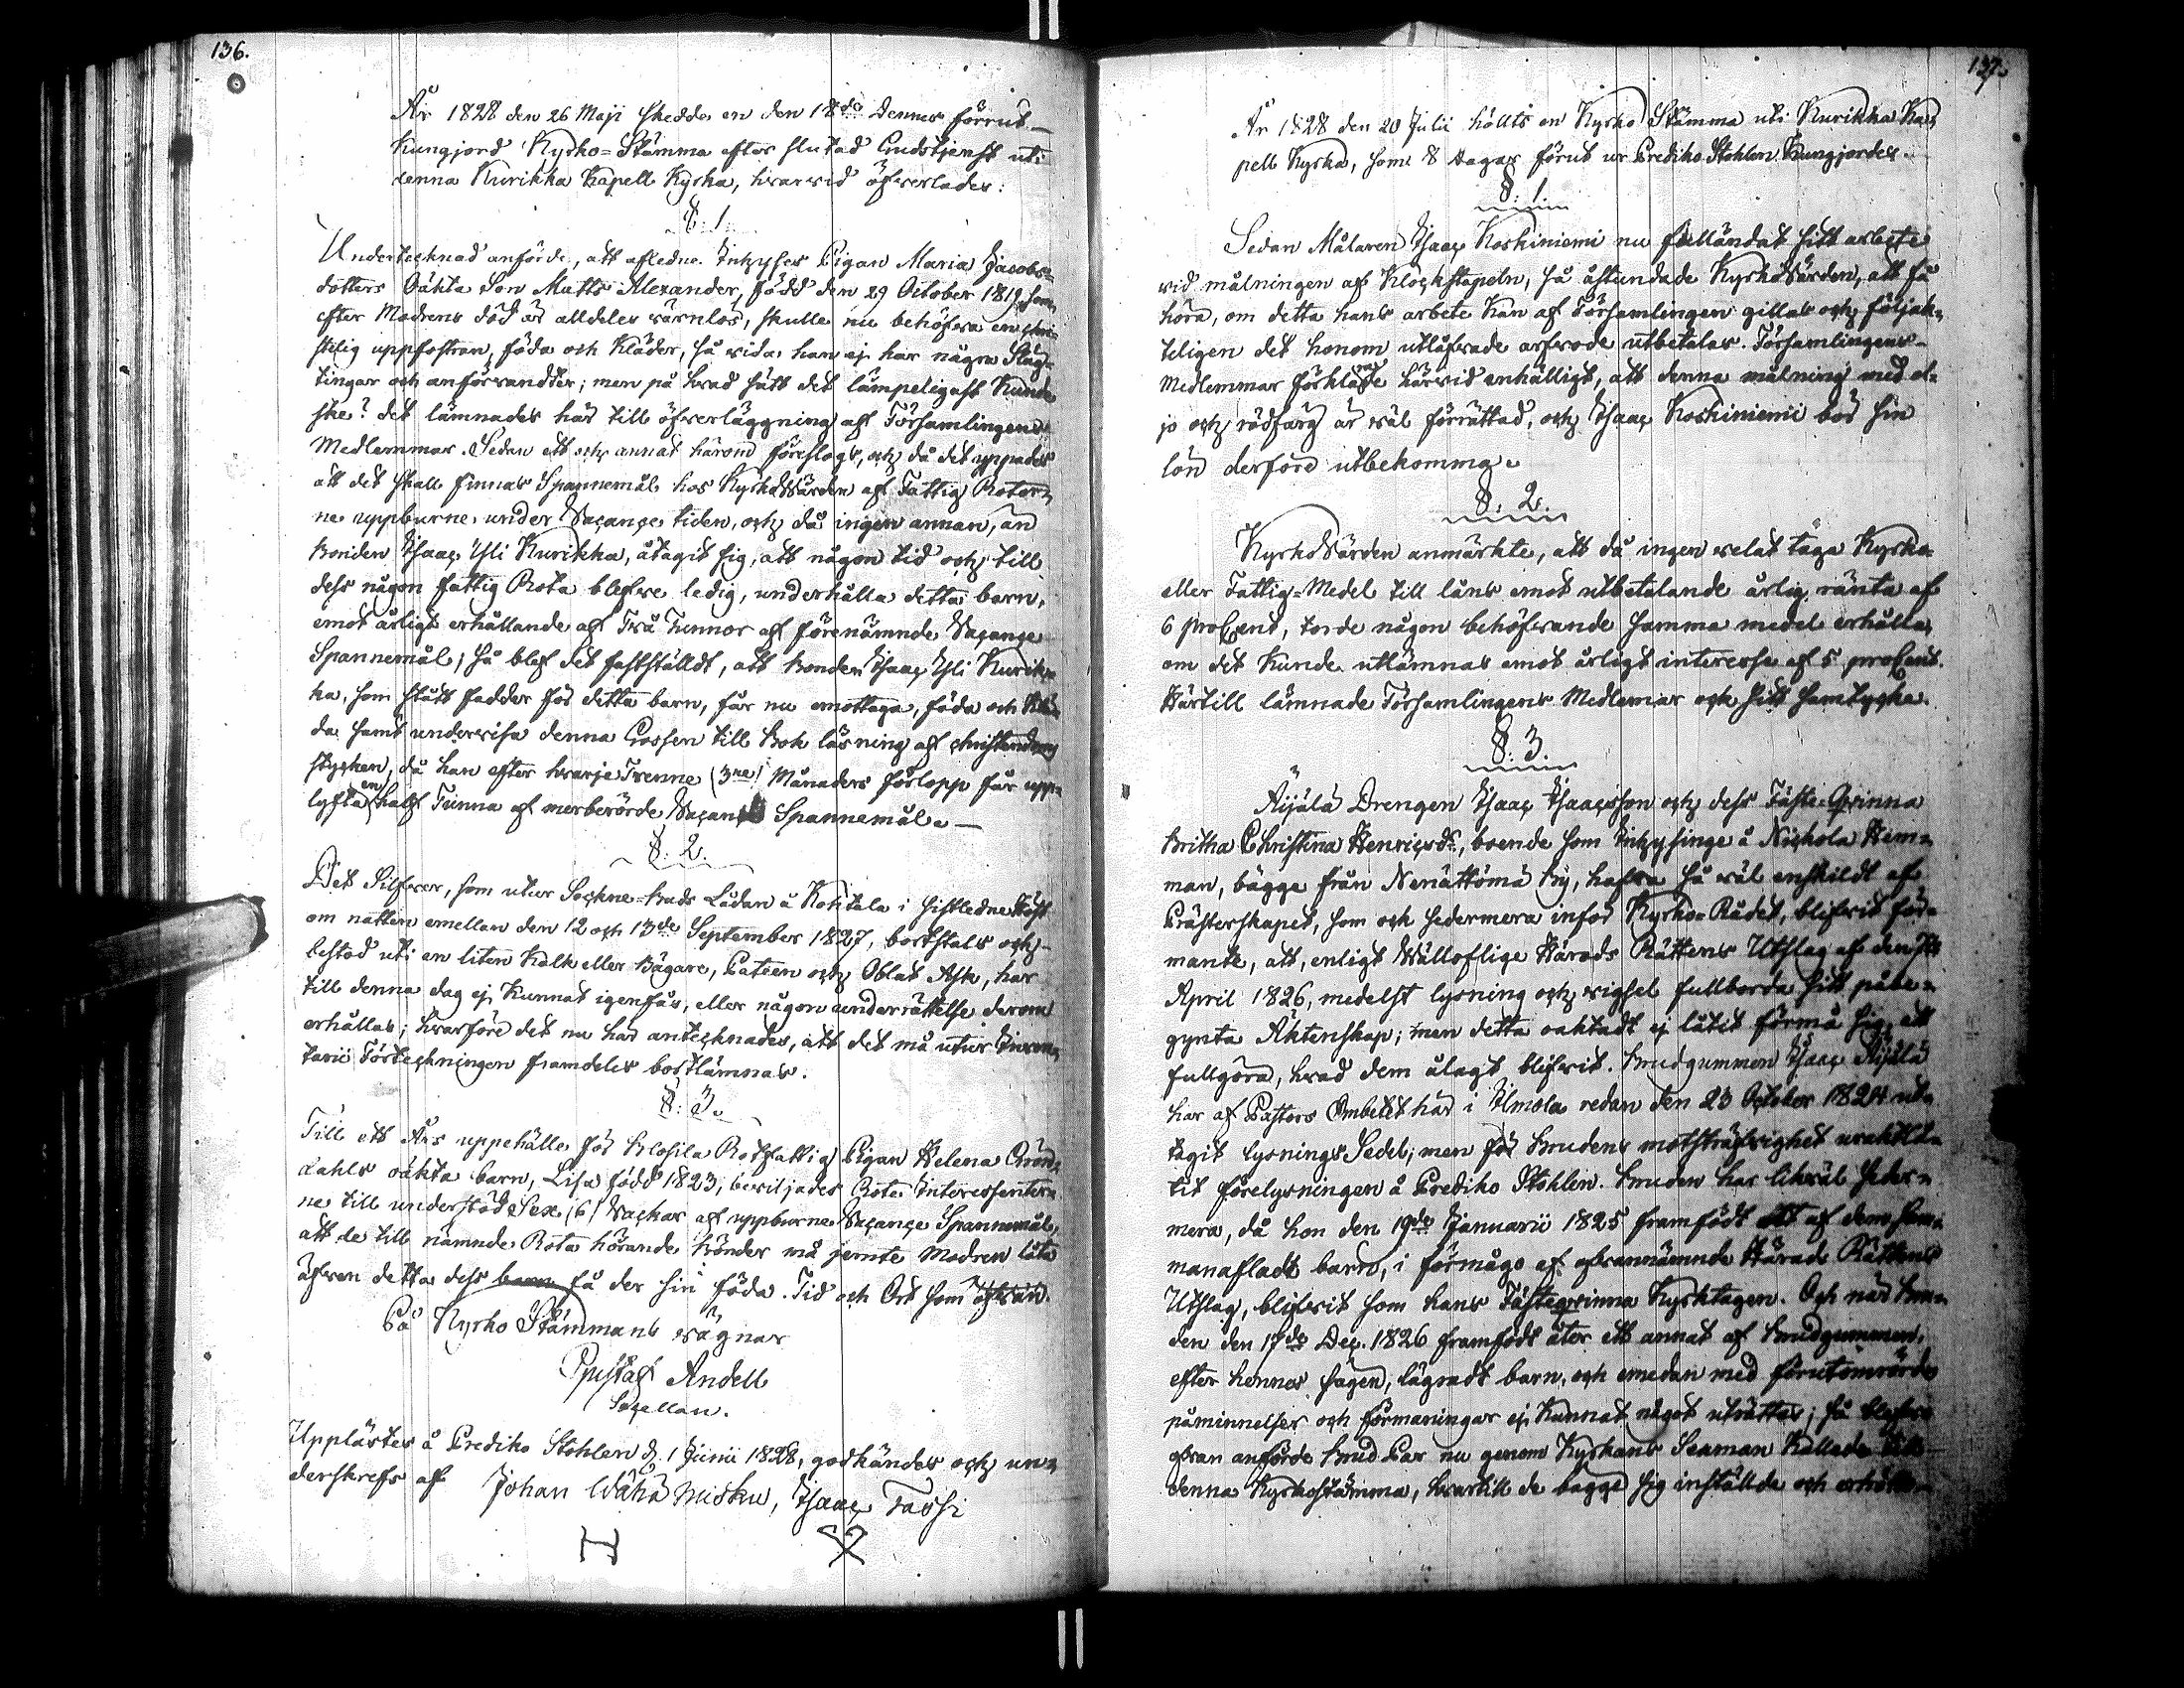 136.
År 1828 den 26 Maji skedde en den 18de Dennes förrut
kungjord Kyrko-Stämma efter slutad Gudstjenst uti
denna Kurikka Kapell Kyrka, hwarwid öfwerlades:
§. 1.
Undertecknad anförde, att afledne Inhyses Pigan Maria Jacobs-
dotters Oäkta Son Matts Alexander, född den 29 October 1819, som
efter Modrens död är alldeles wärnlös, skulle nu behöfwa en chri-
stelig uppfostran, föda och Kläder, så wida han ej har några Släg-
tingar och anförwandter; men på hwad sätt det lämpeligast Kunde
ske? det lämnades här till öfwerläggning af Församlingens
Medlemmar. Sedan ett och annat härom föreslogs, och då det uppades
att det skall finnas Spannemål hos Kyrkowärden af Fattig Rotar-
ne uppburne under Vacance tiden, och då ingen annan, än
Bonden Isaac Yli Kurikka, åtagit sig, att någon tid och till
dess någon fattig Rota blefwe ledig, underhålla detta barn,
emot årligt erhållande af Twå Tunnor af förenämnde Vacance
Spannemål; så blef det fastställdt, att Bonden Isaac Yli Kurik-
ka, som stått fadder för detta barn, får nu emottaga, föda och Klä-
da samt underwisa denna Gossen till Bok läsning af christendoms
stycken, då han efter hwarje Trenne (3ne) Månaders förlopp får upp-
lyfta en half Tunna af merberörde Vacance Spannemål.
§. 2.
Det Silfwer, som utur Sockne-buds Lådan å Kohitala i sistledne Höst
om natten emellan den 12 och 13de September 1827, bortstals och
bestod uti en liten Kalk eller Bägare, Pateen och Oblat Ask, har
till denna dag ej Kunnat igenfås, eller någon underrättelse derom
erhållas; hwarföre det nu här antecknades, att det må utur Inven-
tarii Förteckningen framdeles bortlämnas.
§. 3.
Till ett Års uppehälle för Klosila Rotfattig Pigan Helena Grön-
dahls oäkta barn, Lisa född 1823, bewiljades Rote Interessenter-
ne till understöd Sex (6) Kappar af uppburne Vacance Spannemål,
att de till nämnde Rota hörande bönder må jemte Modren låta
äfwen detta dess barn få der sin föda. Tid och Ort som ofwan.
På Kyrko Stämmans wägnar
Gustaf Andell
Sacellan.
Upplästes å Prediko Stohlen d. 1 Junii 1828, godkändes och un-
derskrefs af Johan Wähä Mietu, Isaac Tassi
137.
År 1828 den 20 Julii hölts en Kyrko Stämma uti Kurikka Ka-
pell Kyrka, som 8 dagar förut ur Prediko Stohlen Kungjordes.
§. 1.
Sedan Målaren Isaac Koskiniemi nu fulländat sitt arbete
wid målningen af Klockstapeln, så åstundade Kyrkowärden, att få
höra, om detta hans arbete Kan af Församlingen gillas och följak-
teligen det honom utlofwade arfwode utbetalas. Församlingens
Medlemmar förklarade härwid enhälligt, att denna målning med ol-
jo och rödfärg är wäl förrättad, och Isaac Koskiniemi bör sin
lön derföre utbekomma.
§. 2.
Kyrkowärden anmärkte, att då ingen welat taga Kyrko-
eller Fattig-Medel till låns emot utbetalande årlig ränta af
6 proCent, torde någon behöfwande samma medel erhålla,
om det Kunde utlämnas emot årligt interesse af 5 proCent.
Härtill lämnade Församlingens Medlemar och sitt samtycke.
§. 3.
Äijälä Drengen Isaac Isaacsson och dess Fäste-Qwinna
Britha Christina Henricsdr, boende som Inhysinge å Nickola Hem-
man, bägge från Nenättömä By, hafwa så wäl enskildt af
Prästerskapet, som och sedermera inför Kyrko-Rådet, blifwit för-
mante, att, enligt Wälloflige Härads Rättens Utslag af den
April 1826, medelst lysning och wigsel fullborda sitt påbe-
gynta Äktenskap; men detta oaktadt ej låtit förmå sig, att
fullgöra, hwad dem ålagt blifwit. Brudgummen Isaac Äijälä
har af Pastors Embetet här i Ilmola redan den 23 October 1824 ut-
tagit lysnings Sedel; men för Brudens motsträfwighet uraktlå-
tit förelysningen å Prediko Stohlen. Bruden har likwäl seder-
mera, då hon den 19de Januarii 1825 framfödt ett af dem sam-
manafladt barn, i förmågo af ofwannämnde Härads Rättens
Utslag, blifwit som hans Fästeqwinna Kyrktagen. Och när Bru-
den den 17de Dec. 1826 framfödt åter ett annat af brudgummen,
efter hennes sägen, lägradt barn, och emedan med förutomrörde
påminnelser och förmaningar ej Kunnat något uträttas; så blefwo
ofwan anförde Brud Par nu genom Kyrkans Sexman Kallade till
denna Kyrkostämma, hwartill de bägge sig inställde och erhöllo